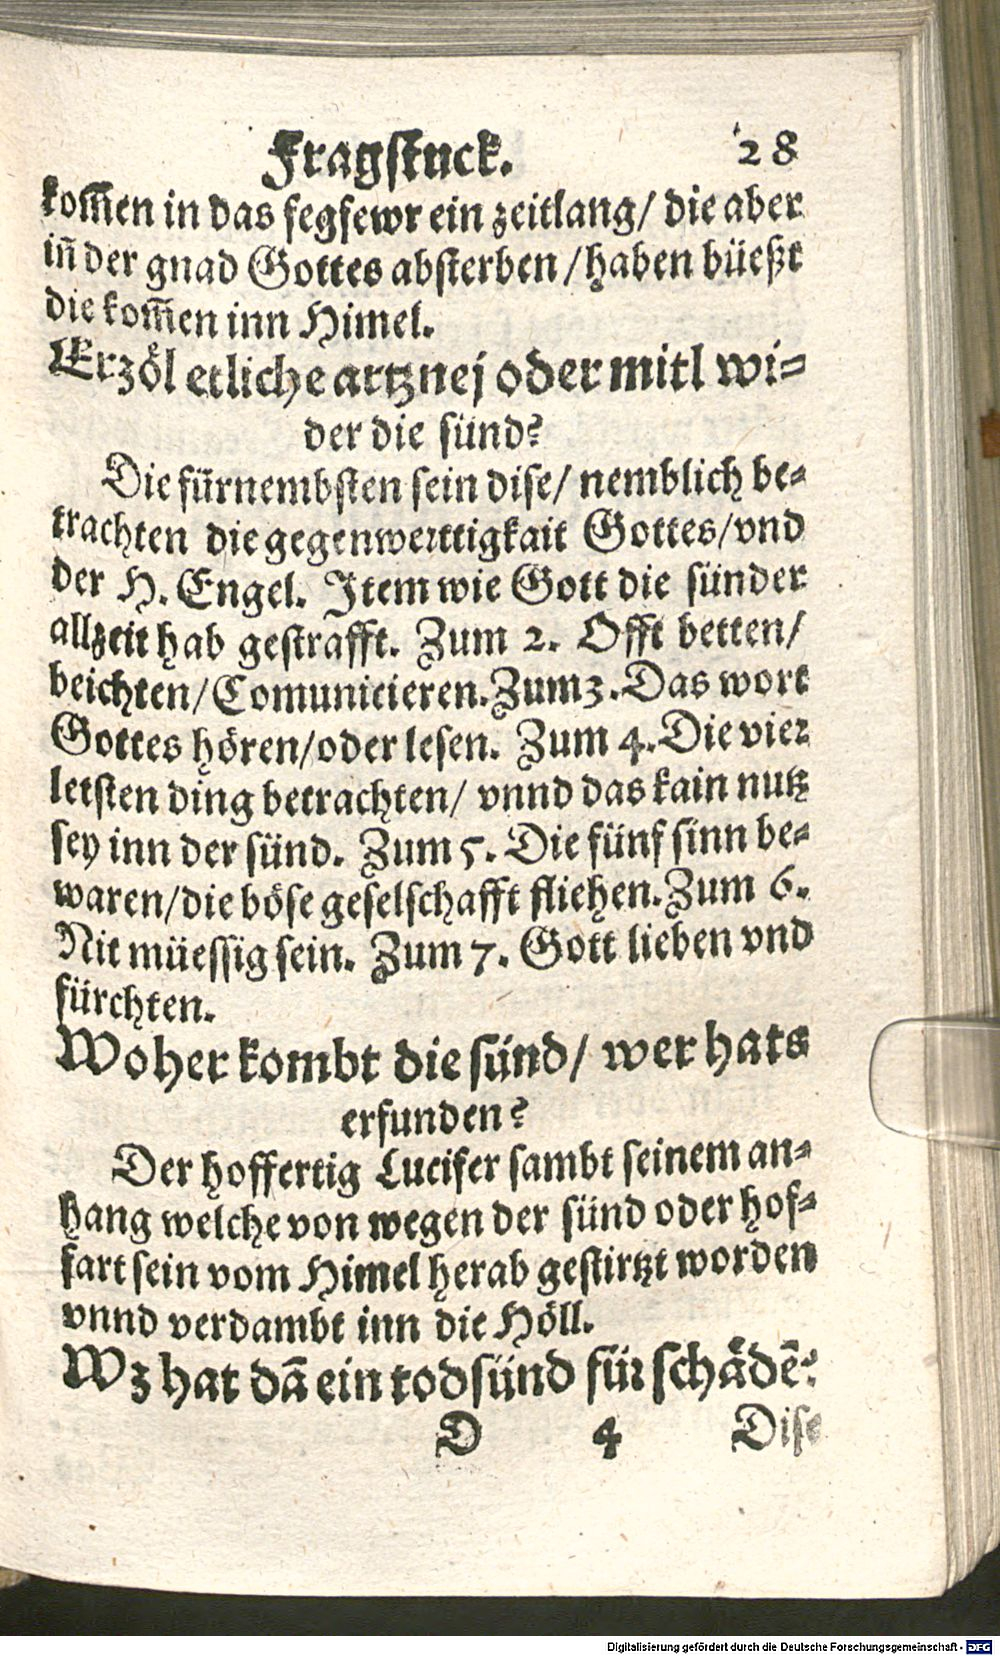 Fragstuck. 28
kom̃en in das fegfewr ein zeitlang/ die aber
iñ der gnad Gottes absterben / haben büeßt
die kom̃en inn Himel.
Erzöl etliche artznej oder mitl wi-
der die sünd?
Die fürnembsten sein dise/ nemblich be-
trachten die gegenwerttigkait Gottes/ vnd
der H. Engel. Item wie Gott die sünder
allzeit hab gestrafft. Zum 2. Offt betten/
beichten/ Comunicieren. Zum 3. Das wort
Gottes hören/ oder lesen. Zum 4. Die vier
letsten ding betrachten/ vnnd das kain nutz
sey inn der sünd. Zum 5. Die fünf sinn be-
waren/ die böse geselschafft fliehen. Zum 6.
Nit müessig sein. Zum 7. Gott lieben vnd
fürchten.
Woher kombt die sünd/ wer hats
erfunden?
Der hoffertig Lucifer sambt seinem an-
hang welche von wegen der sünd oder hof-
fart sein vom Himel herab gestirtzt worden
vnnd verdambt inn die Höll.
Wz hat dã ein todsünd für schädẽ?
D 4 Dise
Digitalisierung gefördert durch die Deutsche Forschungsgemeinschaft - DFG